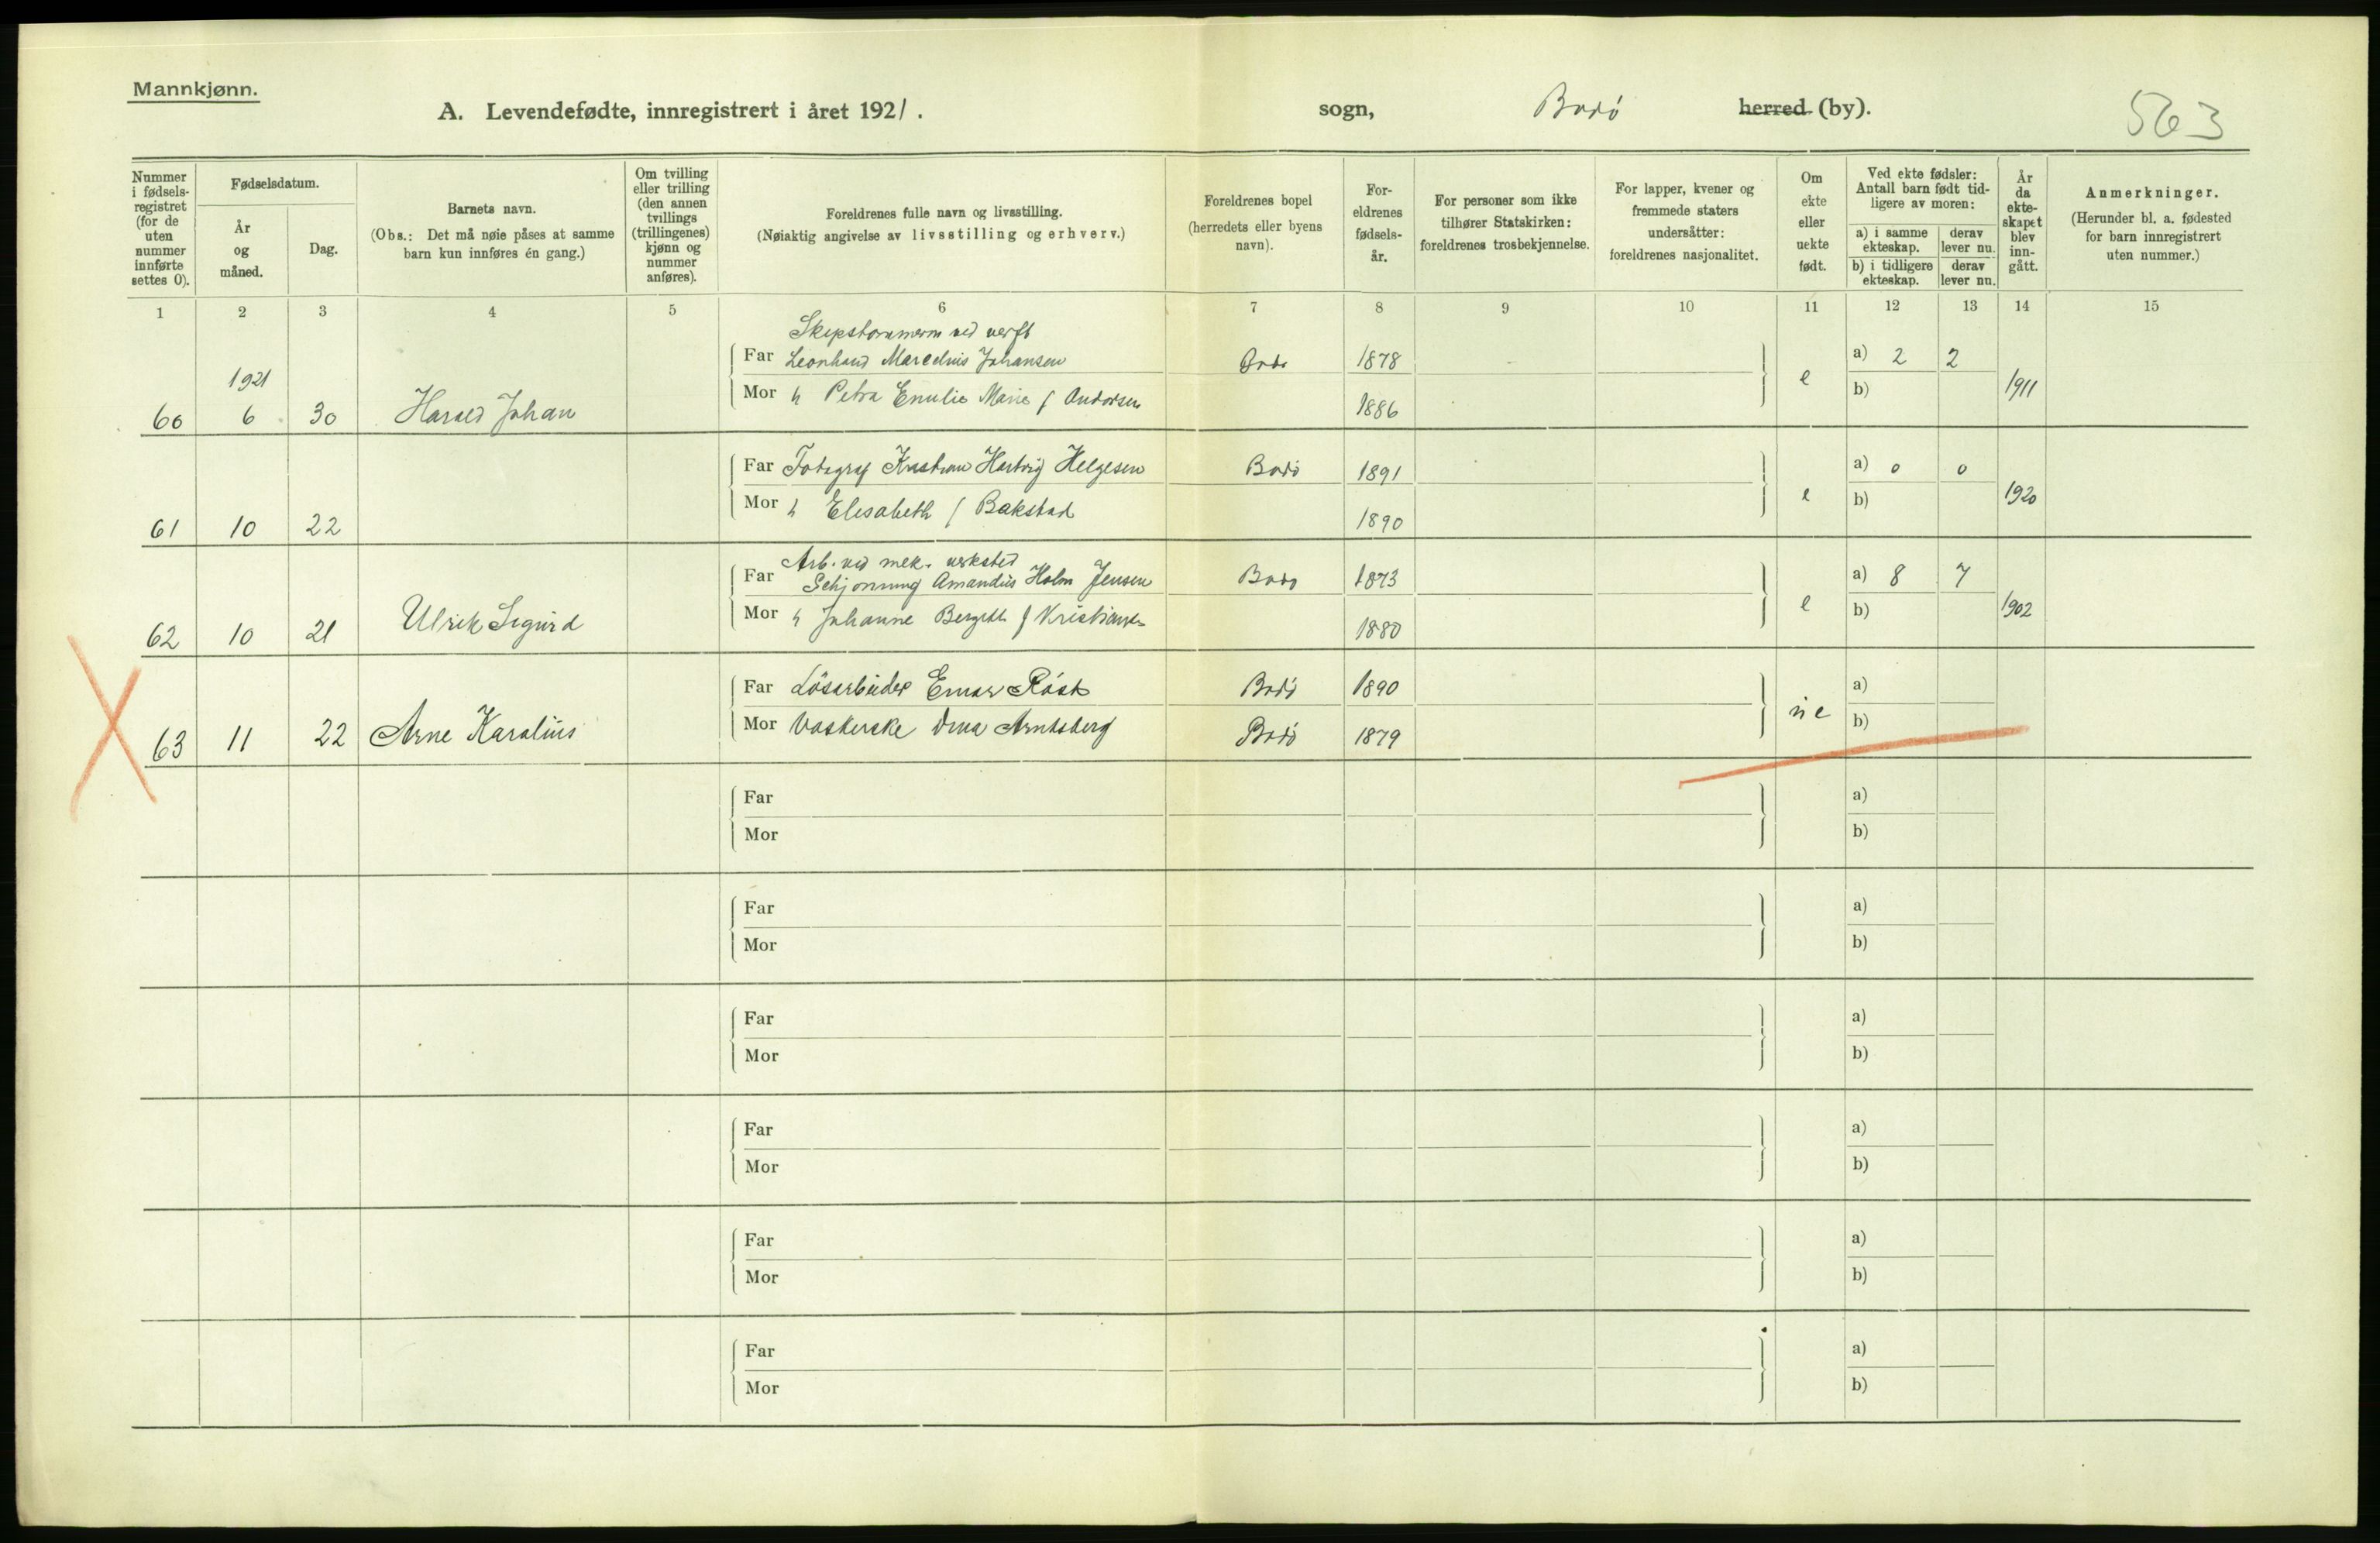 Mannkjønn.
A. Levendefødte, innregistrert i året 1921. sogn, Bodø herred (by). 563
Nummer i fødsels-registret (for de uten nummer innførte settes 0).
Fødselsdatum.
År og måned.
Dag.
Barnets navn.
(Obs.: Det må nøie påses at samme barn kun innføres én gang.)
Om tvilling eller trilling (den annen tvillings (trillingenes) kjønn og nummer anføres).
Foreldrenes fulle navn og livsstilling.
(Nøiaktig angivelse av livsstilling og erhverv.)
Foreldrenes bopel (herredets eller byens navn).
For-eldrenes fødsels-år.
For personer som ikke tilhører Statskirken: foreldrenes trosbekjennelse.
For lapper, kvener og fremmede staters undersåtter: foreldrenes nasjonalitet.
Om ekte eller uekte født.
Ved ekte fødsler: Antall barn født tid-ligere av moren:
a) i samme ekteskap. derav lever nu.
b) i tidligere ekteskap. derav lever nu.
År da ekte-skapet blev inn-gått.
Anmerkninger.
(Herunder bl. a. fødested for barn innregistrert uten nummer.)
1 2 3 4 5 6 7 8 9 10 11 12 13 14 15
Skipstømmerm ved verft
Far Leonhard Marcelius Johansen Bodø 1878 a) 2 2
1921
60 6 30 Harald Johan Mor h Petra Emilie Marie f Andorsen 1886 e b) 1911
Far Fotograf Kristian Hartvig Helgesen Bodø 1891 a) 0 0
61 10 22 Mor h Elisabeth f Bakstad 1890 e b) 1920
Arb. ved mek. verksted
Far Schjønning Amandus Holm Jensen Bodø 1873 a) 8 7
62 10 21 Ulrik Sigurd Mor h Johanne f Kristiansen 1880 e b) 1902
Far Løsarbeider Einar Røst Bodø 1890 a)
63 11 22 Arne Karolius Mor Vaskerske Arntsberg Bodø 1879 ue b)
Far a)
Mor b)
Far a)
Mor b)
Far a)
Mor b)
Far a)
Mor b)
Far a)
Mor b)
Far a)
Mor b)